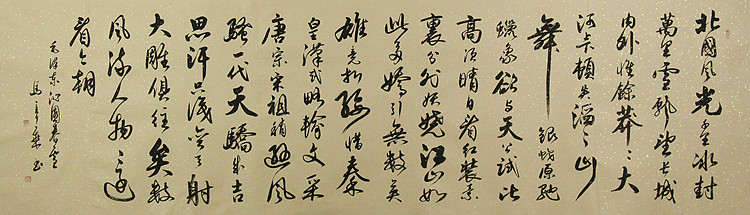 北國風光千里冰封
萬里雪飘望长城
内外惟餘莽々大
河上下頓失滔々山
舞銀蛇原馳
蠟象欲与天公試比
高須晴日看红装素
裹分外妖娆江山如
此多嬌引無數英
雄竞折腰惜秦
皇漢武略輸文采
唐宗宋祖稍遜風
騷一代天驕成吉
思汗只識彎弓射
大雕俱往矣數
風流人物還
看今朝
毛泽东沁園春雪
书